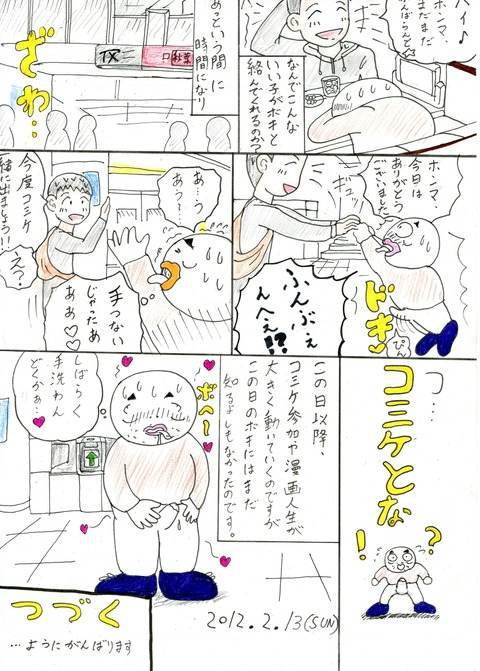 ハイ♪
ホンマ、
まだまだ
がんばらんと
なんでこんな
いい子がボキと
絡んでくれるのか?
あっという間に
時間になり
TX
秋葉
ざわ…
ホンマ、
今日は
ありがとう
ございました
ギュッ
ふんぶぇ
んへぇ!?
ドキ
ぴん
あ…う
あう…
手つない
じゃったあ
ああ♡♡
今度コミケ
一緒に出ましょう!!
え?
つ…
コミケとな
!?
この日以降、
コミケ参加や漫画人生が
大きく動いていくのですが
この日のボキにはまだ
知るよしもなかったのです。
ボヘ〜
しばらく
手洗わん
どくかぁ…
2012.2.13(SUN)
つづく
…ようにがんばります